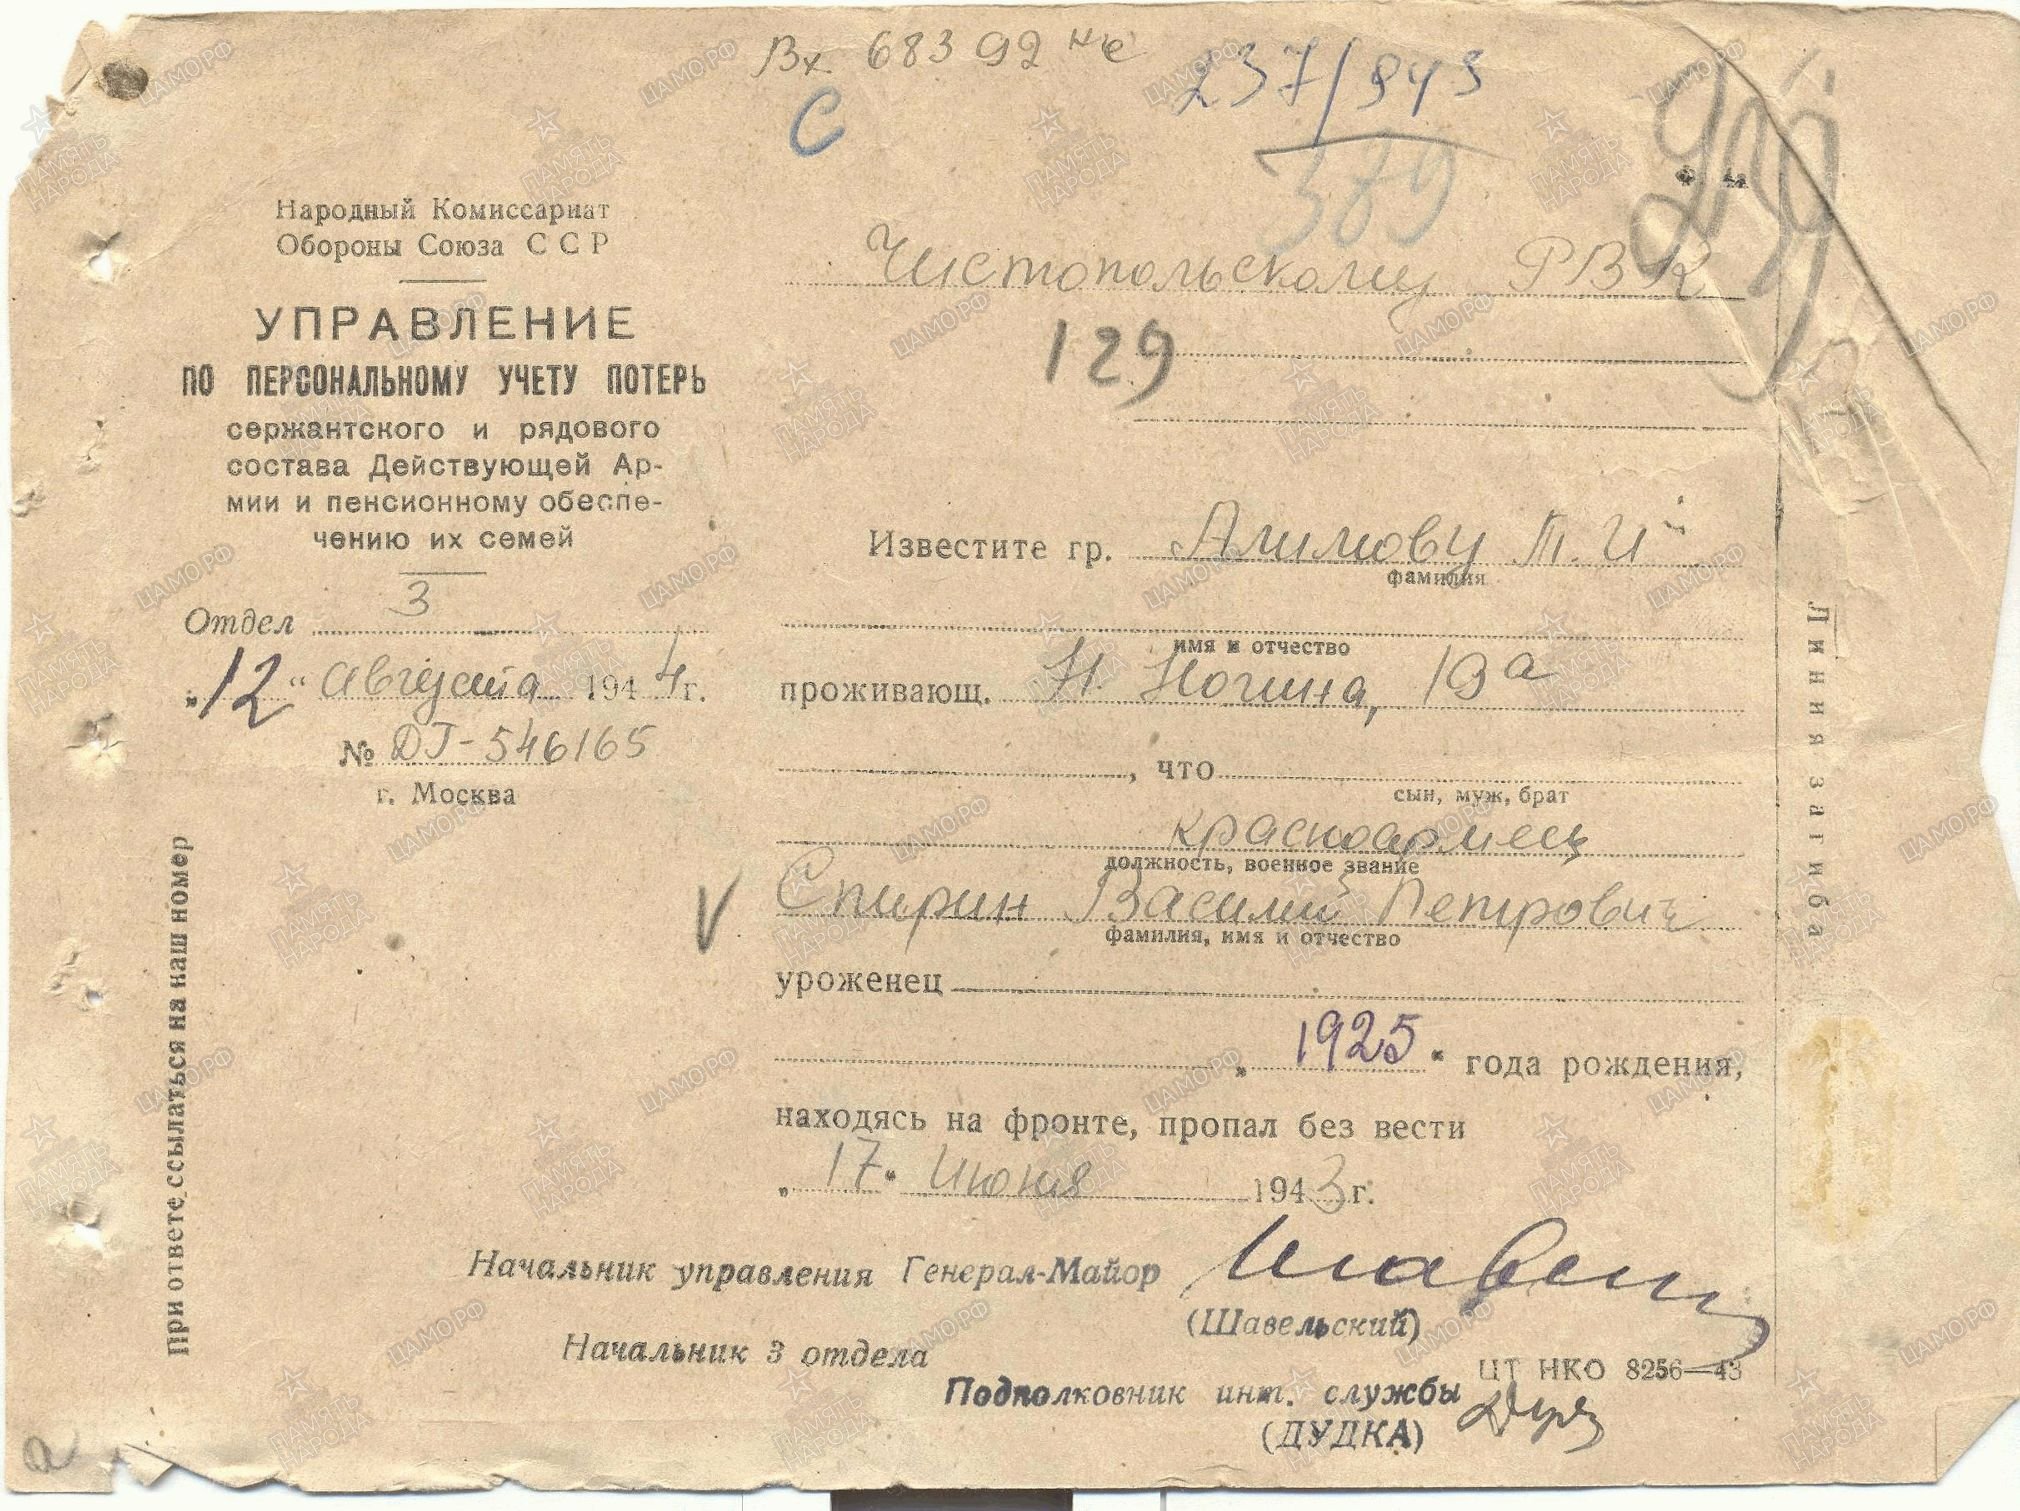 Вх 68392
237/943
С
389
Народный Комиссариат
Обороны Союза ССР
УПРАВЛЕНИЕ
ПО ПЕРСОНАЛЬНОМУ УЧЕТУ ПОТЕРЬ
сержантского и рядового
состава Действующей Ар-
мии и пенсионному обеспе-
чению их семей
Отдел 3
„12“ Августа 1944 г.
№ ДГ-546165
г. Москва
При ответе ссылаться на наш номер
Чистопольскому РВК
129
Известите гр. Алимову Т. И
фамилия
имя и отчество
проживающ. Н. Ногина, 19а
, что
сын, муж, брат
красноармеец
должность, военное звание
V Спирин Василий Петрович
фамилия, имя и отчество
уроженец
„ 1925 " года рождения,
находясь на фронте, пропал без вести
„ 17 " Июня 1943 г.
Начальник управления Генерал-Майор
(Шавельский)
Начальник 3 отдела
ЦТ НКО 8256—43
Подполковник инт. службы
(ДУДКА)
Линия загиба
ПАМЯТЬ НАРОДА
ЦАМО.РФ